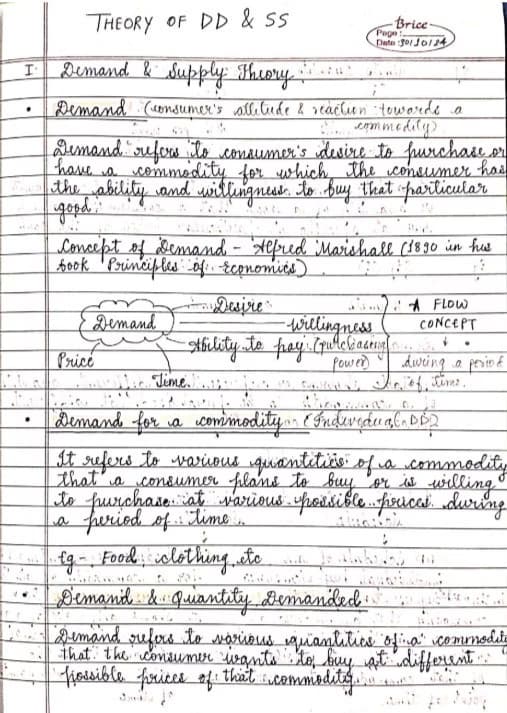 THEORY OF DD & SS
Brice
Page:
Date: 30/10/24
I. Demand & Supply Theory
• Demand (consumer's attitude & reaction towards a
commodity)
Demand refers to consumer's desire to purchase or
have a commodity for which the consumer has
the ability and willingness to buy that particular
good.
Concept of Demand - Alfred Marshall (1890 in his
book Principles of Economics)
Desire
Demand
willingness
Ability to pay (purchasing
power)
Price
Time
A FLOW
CONCEPT
during a period
of time
• Demand for a commodity (Individual DD)
It refers to various quantities of a commodity
that a consumer plans to buy or is willing
to purchase at various possible prices during
a period of time.
Eg - Food, clothing, etc
• Demand & Quantity Demanded
Demand refers to various quantities of a commodity
that the consumer wants to buy at different
possible prices of that commodity.